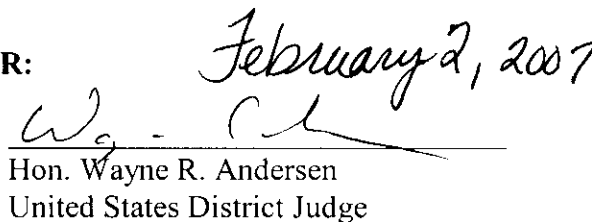 R: February 2, 2007
Hon. Wayne R. Andersen
United States District Judge